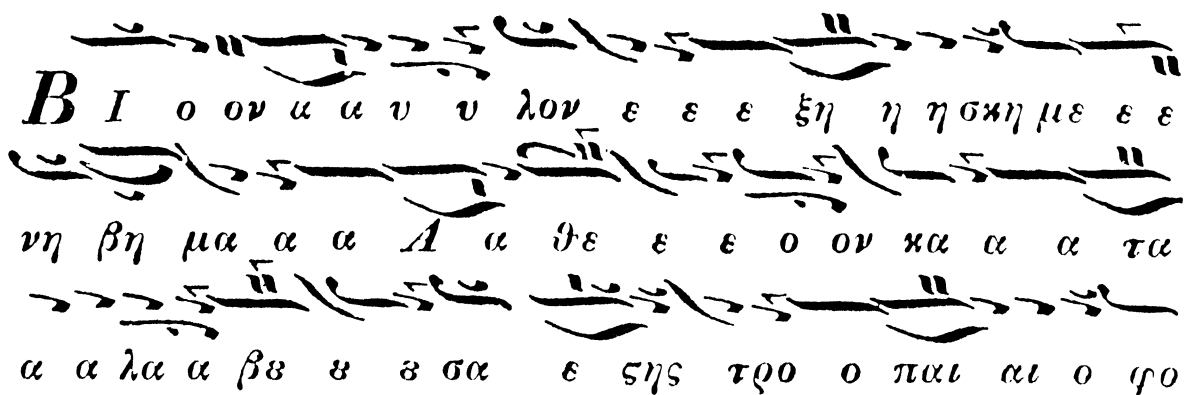 Β Ι ο ον α α υ υ λον ε ε ε ξη η η σκη με ε ε
νη βη μα α α Λ α θε ε ε ο ον κα α α τα
α α λα α βȣ ȣ ȣ σα ε ϛης τρο ο παι αι ο φο